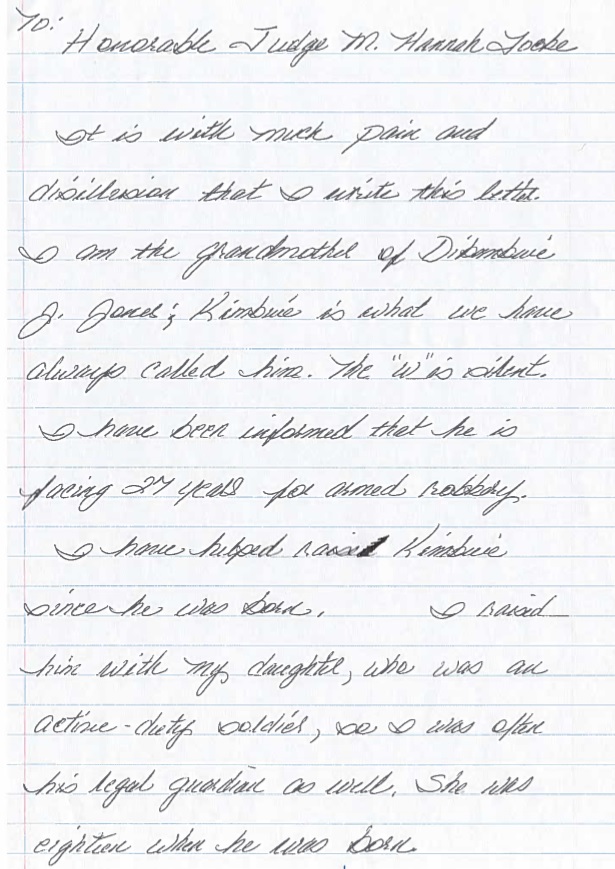 To:
Honorable Judge M. Hannah
It is with much pain and
disillusion that I write this letter.
I am the grandmother of
J. Jones; Kimbwie is what we have
always called him. The "w" is silent.
I have been informed that he is
facing 27 years for armed robbery.
I have helped raise Kimbwie
since he was born. I raised
him with my daughter, who was an
active-duty soldier, so I was often
his legal guardian as well. She was
eighteen when he was born.